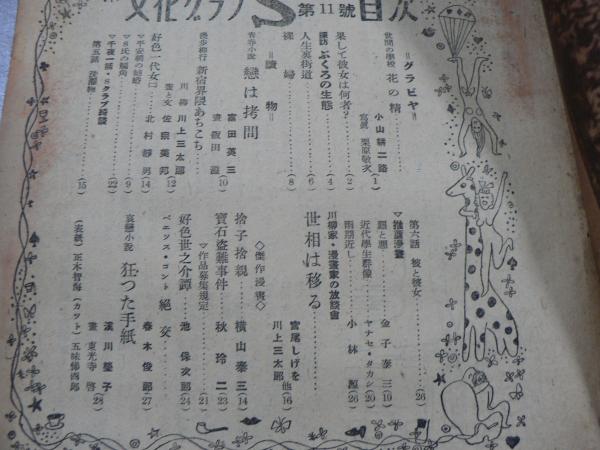 文化グラフS第11號目次
＝グラビヤ＝
世間の學校 花の精……小山耕二路(1)
寫眞 栗原敬次
果して彼女は何者?……(2)
諷訪 ふくろの生態……(4)
人生裏街道……(6)
裸婦……(8)
＝讀物＝
青春小說 戀は拷問……富田英三(10)
漫步橫行 新宿界隈あちこち
川柳 川上三太郎
畫と文 佐宗美邦(12)
好色一代女……北村靜男(14)
▽S氏の触角……(9)
▽千夜一話・Sクラブ綺談……(22)
第五話……(15)
第六話 彼と彼女……(26)
▽推薦漫畫
題と題……金子泰三(19)
近代學生群像……ヤナセ・タカシ(20)
雨期近し……小林源(26)
川柳家・漫畫家の放談會
世相は移る……宮尾しげを
川上三太郎 他(16)
◇傑作漫畫◇
捨子捨親……橫山泰三(14)
寶石盜難事件……秋玲二(23)
▽作品募集規定……(21)
好色世之介譚……池保次郎(24)
ペエソス・コント 絶交……春木俊郎(27)
哀戀小說 狂つた手紙……濱川瑩子(28)
畫 東光寺啓
(表紙)正木智海 (カット)五味悌四郎